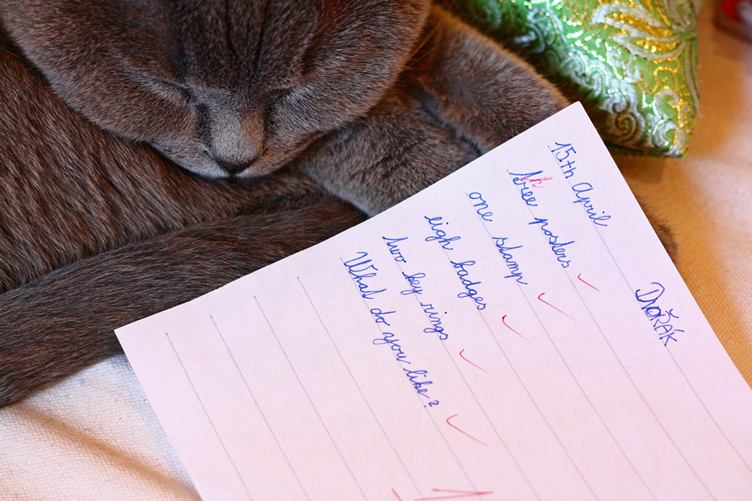 DVOŘÁK
15th April
three posters
one stamp
eigh badges
two key rings
What do you like?
1